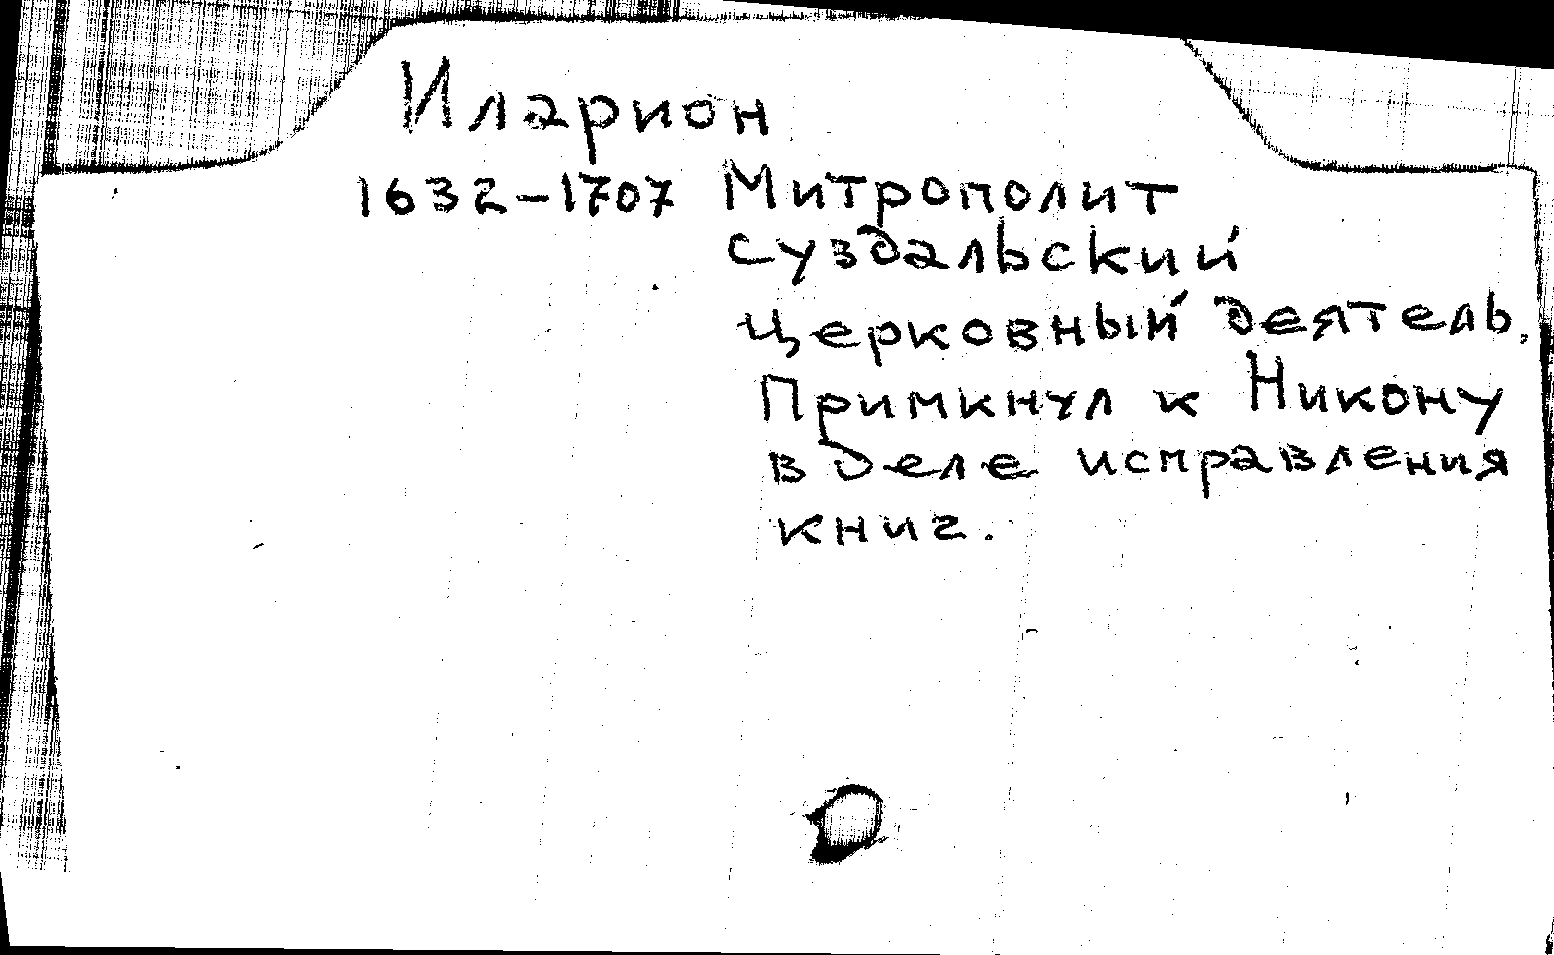 Иларион
1632-1707 Митрополит
суздальский
церковный деятель,
Примкнул к Никону
в деле исправления
книг.